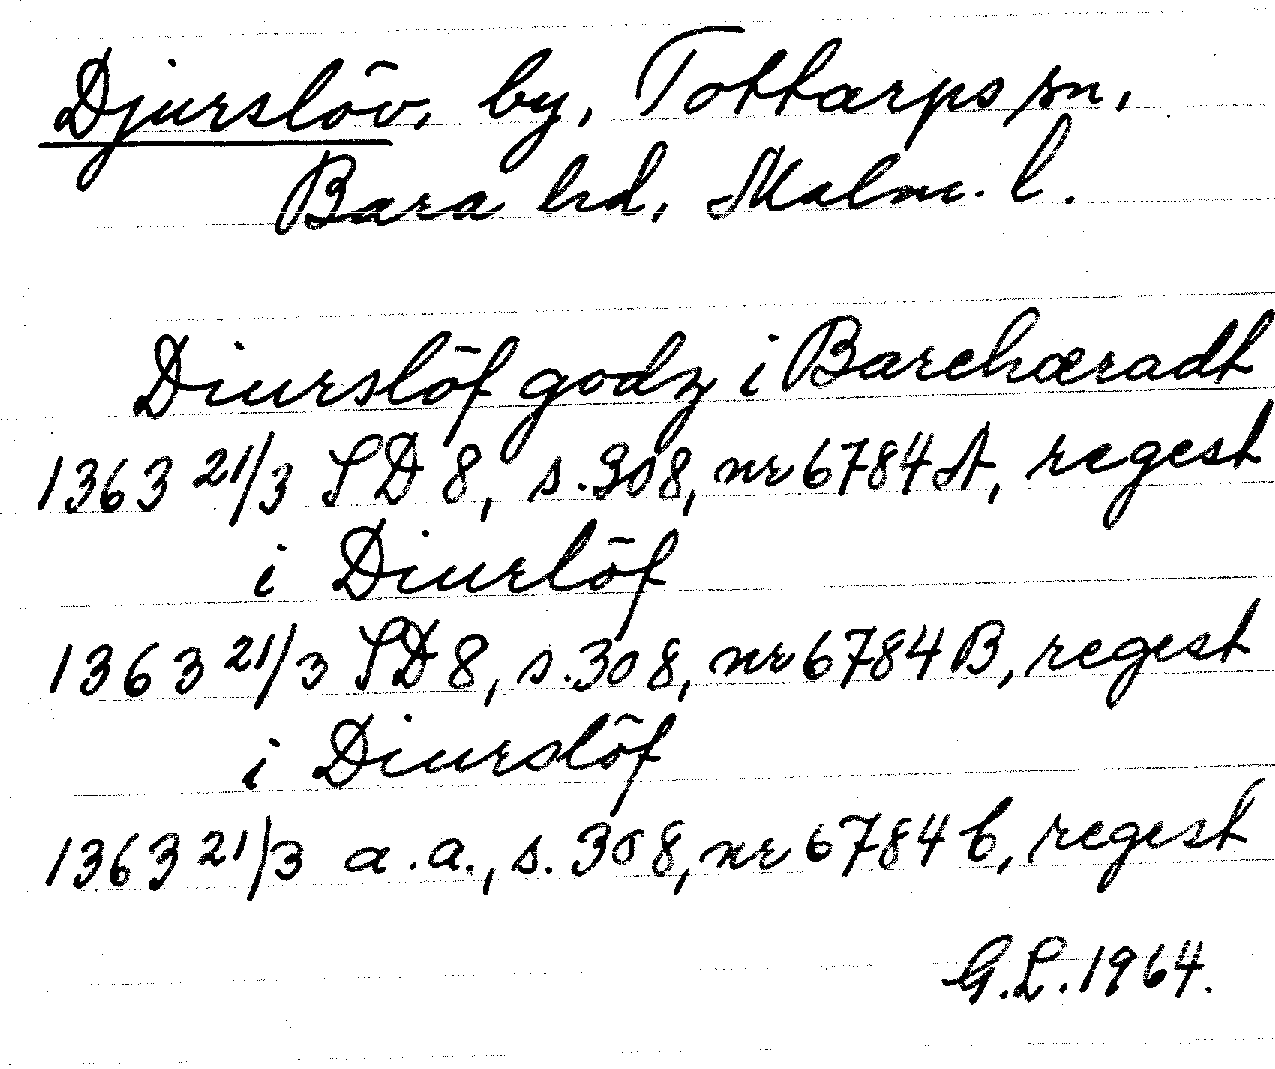 Djurslöv, by, Tottarps sn,
Bara hd, Malm. l.
Diurslöf godz i Barehæradt
1363 21/3 SD 8, s. 308, nr 6784 A, regest
i Diurlöf
1363 21/3 SD 8, s. 308, nr 6784 B, regest
i Diurslöf
1363 21/3 a.a., s. 308, nr 6784 b, regest
G.L. 1964.